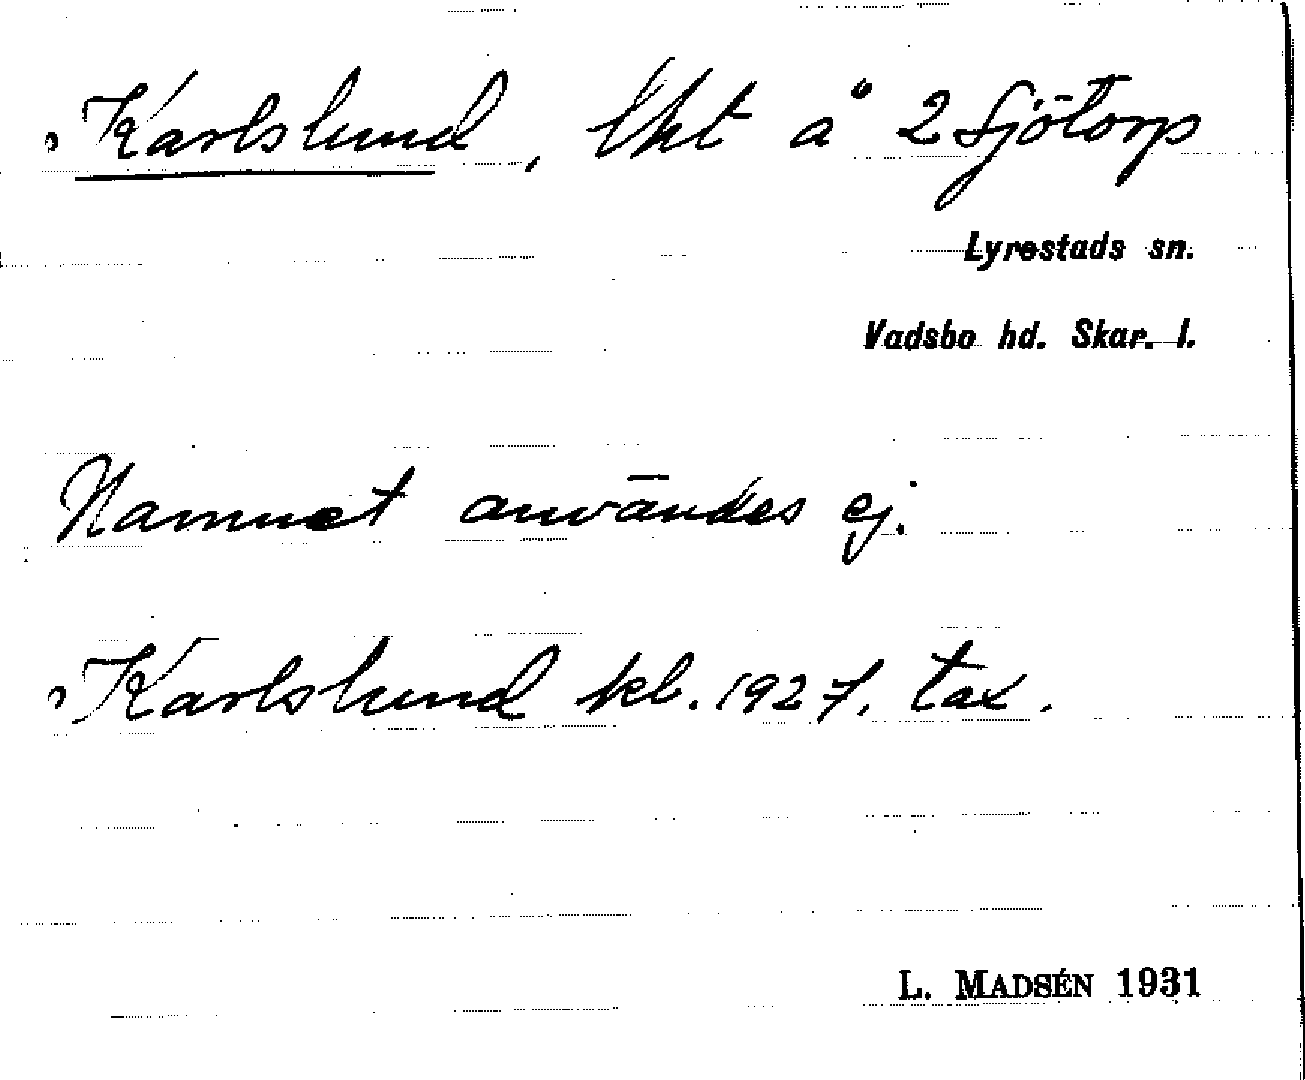 Karlslund, lht å 2 Sjötorp
Lyrestads sn.
Vadsbo hd. Skar. l.
Namnet användes ej.
Karlslund kb. 1927, tax.
L. MADSÉN 1931